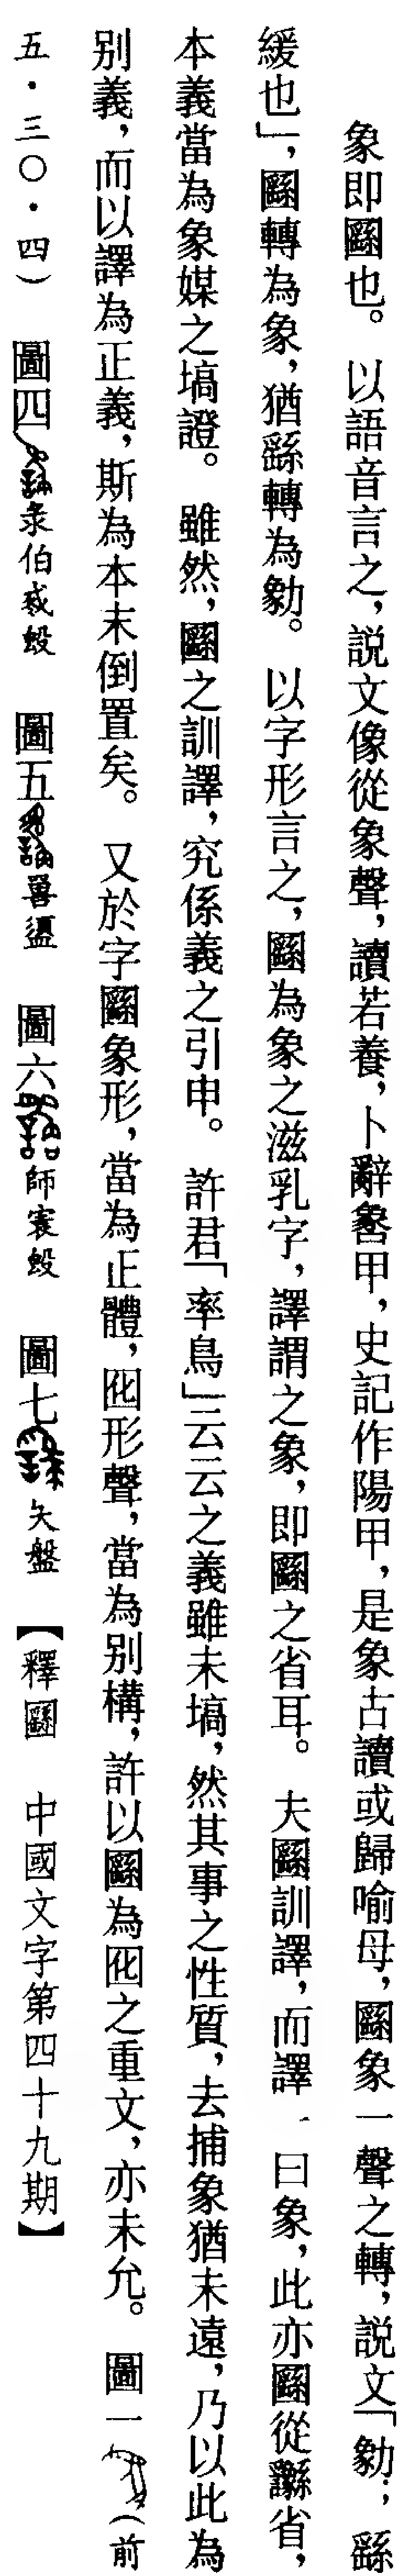 象即圝也。以語音言之，説文像從象聲，讀若養，卜辭象甲，史記作陽甲，是象古讀或歸喻母，圝象一聲之轉，説文「勨；繇
緩也」，圝轉為象，猶繇轉為勨。以字形言之，圝為象之滋乳字，譯謂之象，即圝之省耳。夫圝訓譯，而譯一曰象，此亦圝從省，
本義當為象媒之塙證。雖然，圝之訓譯，究係義之引申。許君「率鳥」云云之義雖未塙，然其事之性質，去捕象猶未遠，乃以此為
别義，而以譯為正義，斯為本末倒置矣。又於字圝象形，當為正體，囮形聲，當為别構，許以圝為囮之重文，亦未允。圖一（前
五·三〇·四）圖四彔伯㦰𣪘 圖五 盨 圖六師㝨𣪘 圖七 夨盤 【釋圝 中國文字第四十九期】